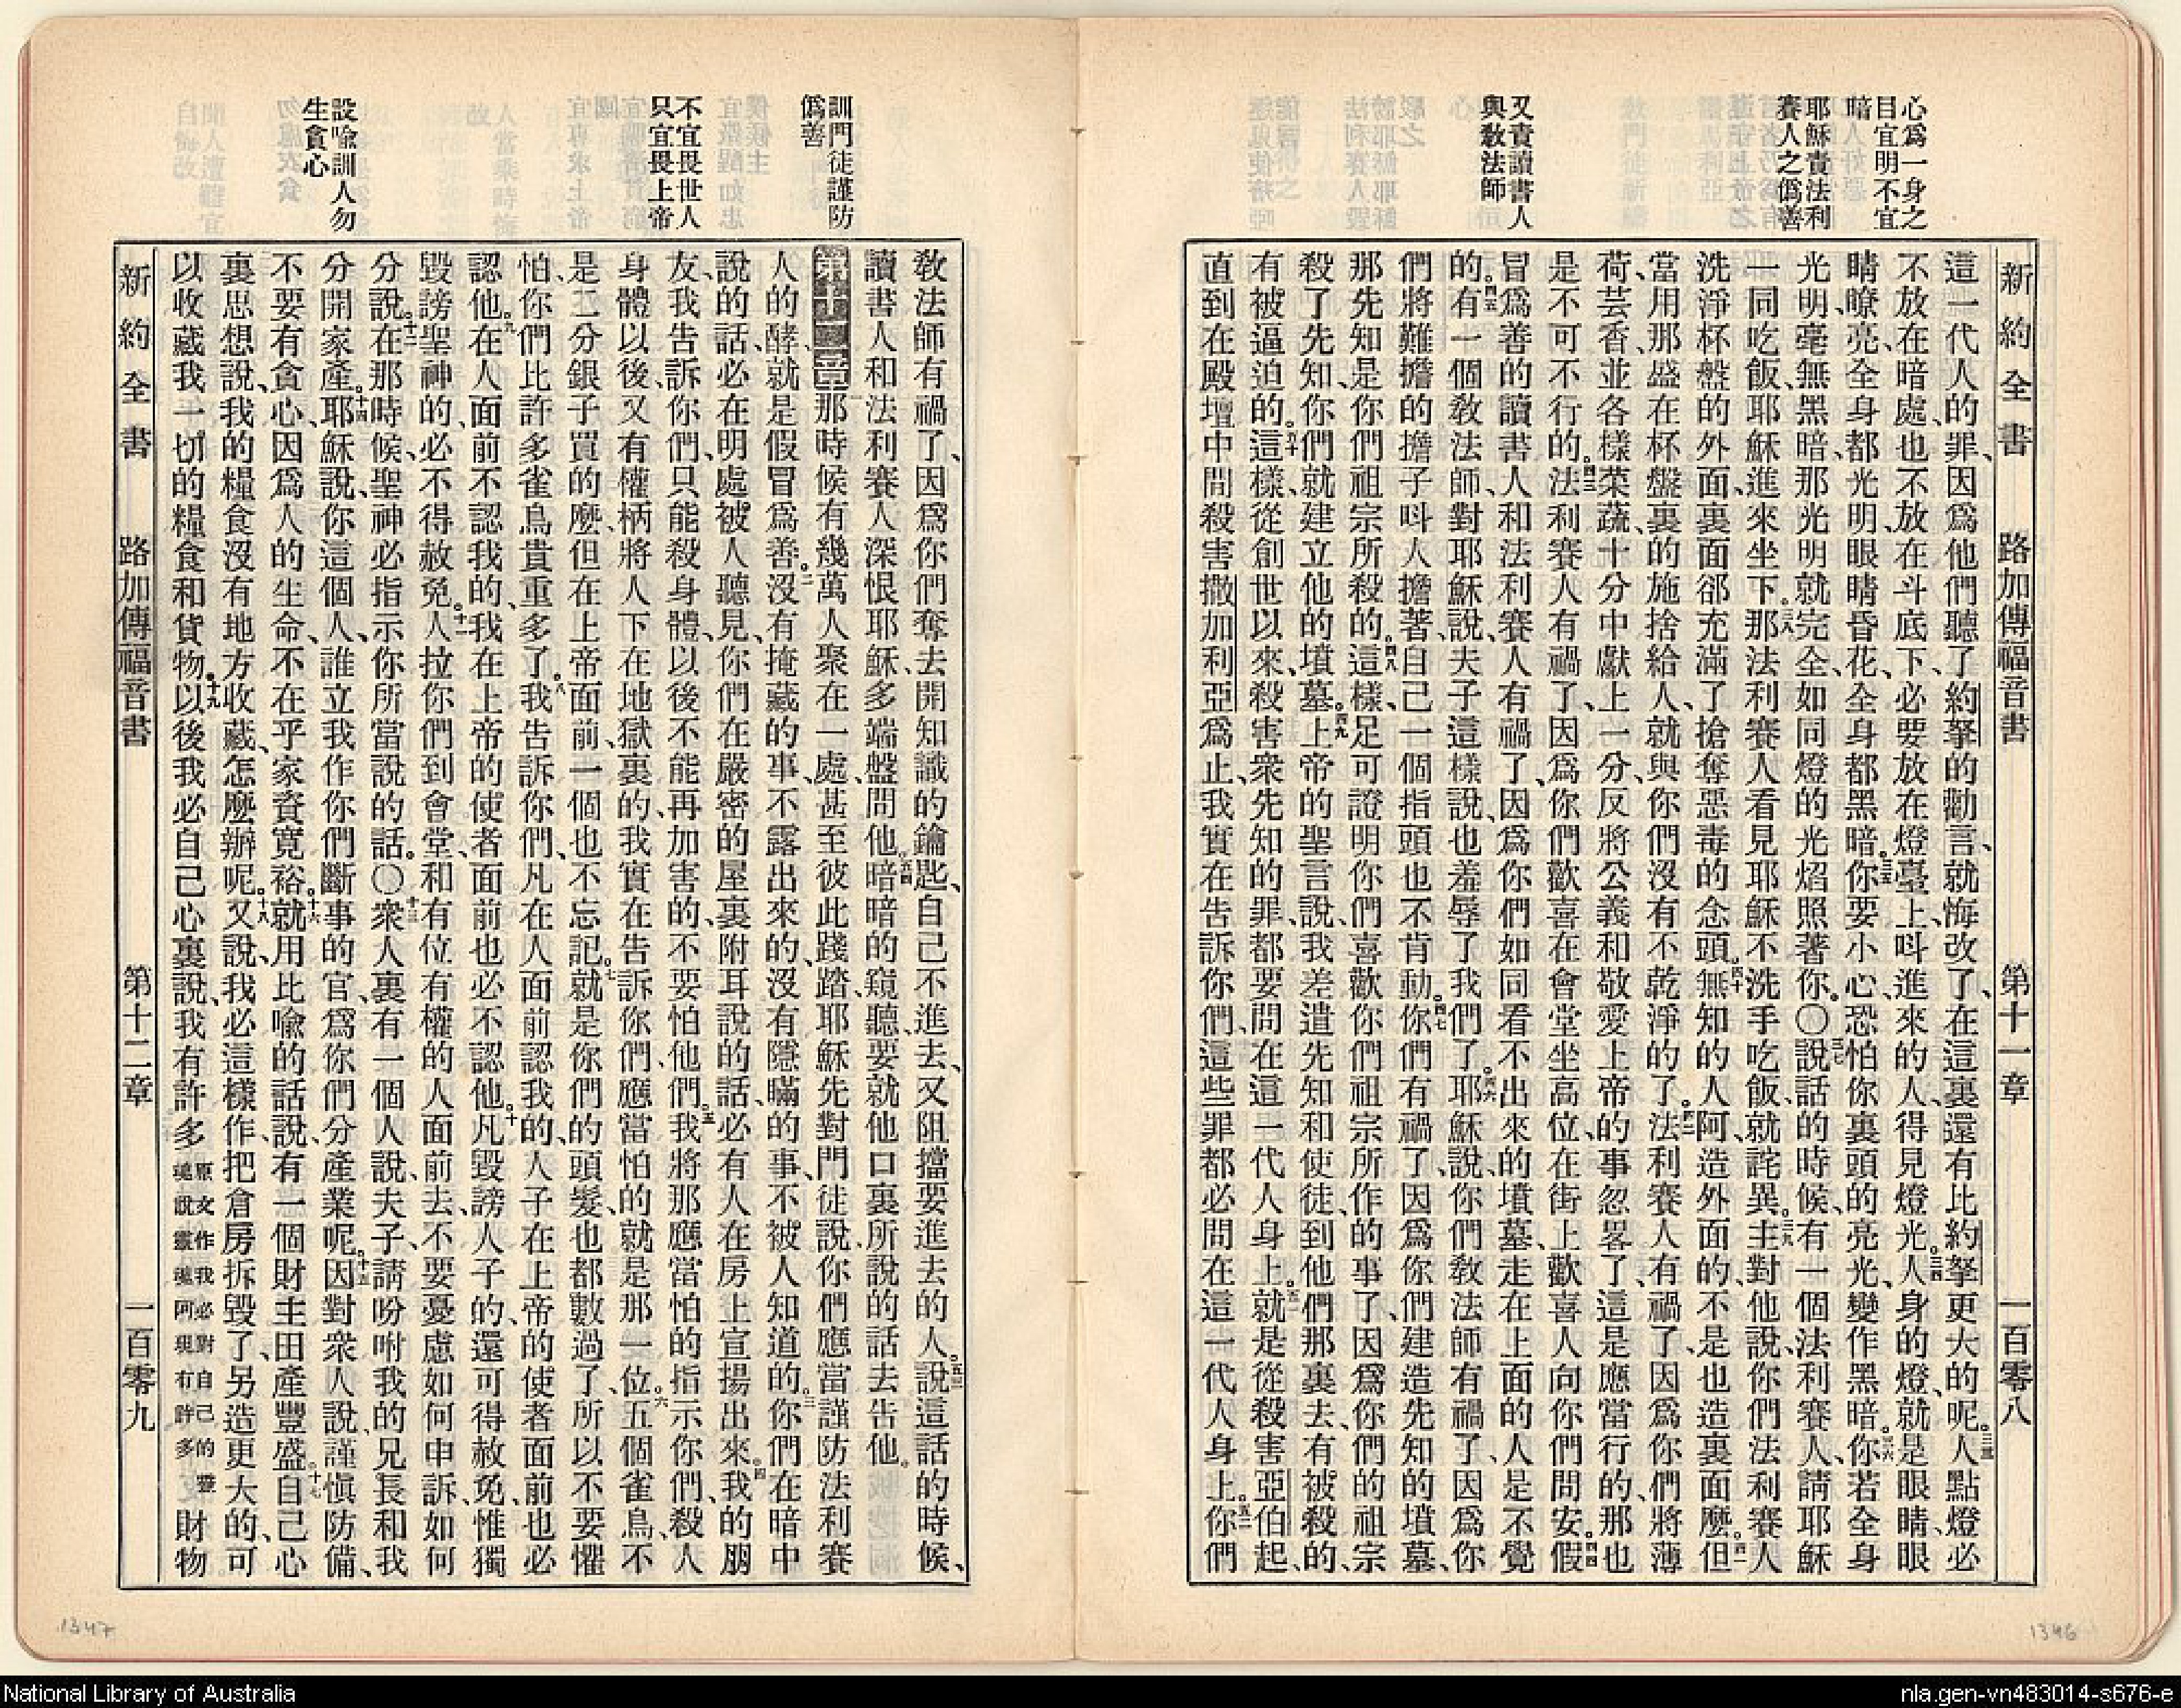 新約全書 路加傳福音書 第十一章 一百零八
心爲一身之
目宜明不宜
暗
耶穌責法利
賽人之僞善
又責讀書人
與敎法師
這一代人的罪、因爲他們聽了約拏的勸言、就悔改了、在這裏還有比約拏更大的呢。三三人點燈必
不放在暗處、也不放在斗底下、必要放在燈臺上、呌進來的人、得見燈光。三四人身的燈、就是眼睛、眼
睛瞭亮、全身都光明、眼睛昏花、全身都黑暗。三五你要小心、恐怕你裏頭的亮光、變作黑暗。三六你若全身
光明、毫無黑暗、那光明就完全、如同燈的光焰照著你。〇三七說話的時候、有一個法利賽人、請耶穌
一同吃飯、耶穌進來坐下。三八那法利賽人看見耶穌不洗手吃飯、就詫異。三九主對他說、你們法利賽人
洗淨杯盤的外面、裏面郤充滿了搶奪惡毒的念頭。四十無知的人阿、造外面的、不是也造裏面麼。四一但
當用那盛在杯盤裏的施捨給人、就與你們沒有不乾淨的了。四二法利賽人有禍了、因爲你們將薄
荷、芸香、並各樣菜蔬、十分中獻上一分、反將公義和敬愛上帝的事忽畧了、這是應當行的、那也
是不可不行的。四三法利賽人有禍了、因爲你們歡喜在會堂坐高位、在街上歡喜人向你們問安。四四假
冒爲善的讀書人和法利賽人有禍了、因爲你們如同看不出來的墳墓、走在上面的人是不覺
的。四五有一個敎法師、對耶穌說、夫子這樣說、也羞辱了我們了。四六耶穌說、你們敎法師有禍了、因爲你
們將難擔的擔子呌人擔著、自己一個指頭也不肯動。四七你們有禍了、因爲你們建造先知的墳墓、
那先知是你們祖宗所殺的。四八這樣、足可證明你們喜歡你們祖宗所作的事了、因爲你們的祖宗
殺了先知、你們就建立他的墳墓。四九上帝的聖言說、我差遣先知和使徒、到他們那裏去、有被殺的、
有被逼迫的。五十這樣、從創世以來、殺害衆先知的罪、都要問在這一代人身上。五一就是從殺害亞伯起、
直到在殿壇中間殺害撒加利亞爲止、我實在告訴你們、這些罪都必問在這一代人身上。五二你們
訓門徒謹防
僞善
不宜畏世人
只宜畏上帝
設喩訓人勿
生貪心
敎法師有禍了、因爲你們奪去開知識的鑰匙、自己不進去、又阻擋要進去的人。五三說這話的時候、
讀書人和法利賽人深恨耶穌、多端盤問他。五四暗暗的窺聽、要就他口裏所說的話去告他。
第十二章那時候有幾萬人聚在一處、甚至彼此踐踏、耶穌先對門徒說、你們應當謹防法利賽
人的酵、就是假冒爲善。二沒有掩藏的事、不露出來的、沒有隱瞞的事、不被人知道的。三你們在暗中
說的話、必在明處被人聽見、你們在嚴密的屋裏附耳說的話、必有人在房上宣揚出來。四我的朋
友、我告訴你們、只能殺身體、以後不能再加害的、不要怕他們。五我將那應當怕的指示你們、殺人
身體以後、又有權柄將人下在地獄裏的、我實在告訴你們、應當怕的就是那一位。六五個雀鳥、不
是二分銀子買的麼、但在上帝面前、一個也不忘記。七就是你們的頭髮、也都數過了、所以不要懼
怕、你們比許多雀鳥貴重多了。八我告訴你們、凡在人面前認我的、人子在上帝的使者面前也必
認他。九在人面前不認我的、我在上帝的使者面前也必不認他。十凡毀謗人子的、還可得赦免、惟獨
毀謗聖神的、必不得赦免。十一人拉你們到會堂、和有位有權的人面前去、不要憂慮如何申訴、如何
分說。十二在那時候、聖神必指示你所當說的話。〇十三衆人裏有一個人說、夫子、請吩咐我的兄長和我
分開家產。十四耶穌說、你這個人、誰立我作你們斷事的官、爲你們分產業呢。十五因對衆人說、謹愼防備、
不要有貪心、因爲人的生命、不在乎家資寬裕。十六就用比喩的話說、有一個財主田產豐盛。十七自己心
裏思想說、我的糧食沒有地方收藏、怎麼辦呢。十八又說、我必這樣作、把倉房拆毀了、另造更大的、可
以收藏我一切的糧食和貨物。十九以後我必自己心裏說、我有許多原文作我必對自己的靈魂說靈魂阿與有許多財物
新約全書 路加傳福音書 第十二章 一百零九
1347
1346
National Library of Australia
nla.gen-vn483014-s676-e